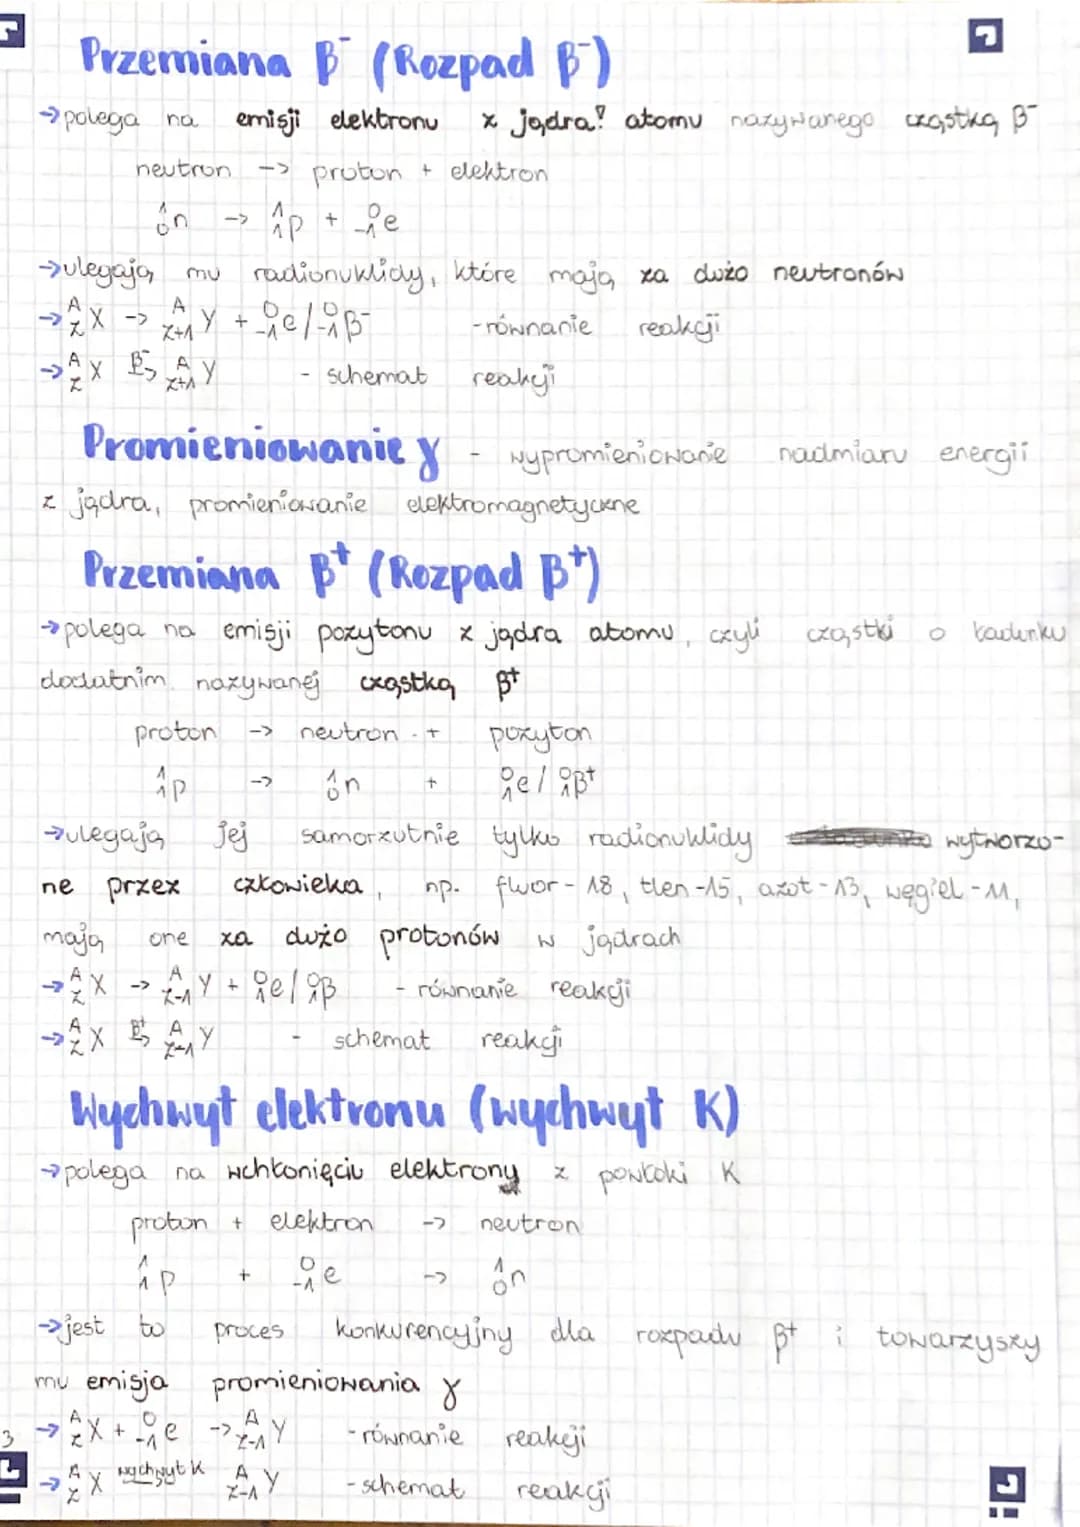 Przemiana β⁻ (Rozpad β⁻)
→ polega na emisji elektronu z jądra? atomu nazywanego cząstką β⁻
neutron -> proton + elektron
¹₀n -> ¹₁p + ⁰₋₁e
→ ulegają mu radionuklidy, które mają za dużo neutronów
→ ᴬ_Z X -> ᴬ_Z+1 Y + ⁰₋₁e / ⁰₋₁β⁻ - równanie reakcji
→ ᴬ_Z X β⁻-> ᴬ_Z+1 Y - schemat reakcji
Promieniowanie γ - wypromieniowanie nadmiaru energii
z jądra, promieniowanie elektromagnetyczne
Przemiana β⁺ (Rozpad β⁺)
→ polega na emisji pozytonu z jądra atomu, czyli cząstki o ładunku
dodatnim nazywanej cząstką β⁺
proton -> neutron + pozyton
¹₁p -> ¹₀n + ⁰₁e / ⁰₁β⁺
→ ulegają jej samorzutnie tylko radionuklidy wytworzo-
ne przez człowieka, np. fluor-18, tlen-15, azot-13, węgiel-11,
mają one za dużo protonów w jądrach
→ ᴬ_Z X -> ᴬ_Z-1 Y + ⁰₁e / ⁰₁β - równanie reakcji
→ ᴬ_Z X β⁺-> ᴬ_Z-1 Y - schemat reakcji
Wychwyt elektronu (wychwyt K)
→ polega na wchłonięciu elektrony z powłoki K
proton + elektron -> neutron
¹₁p + ⁰₋₁e -> ¹₀n
→ jest to proces konkurencyjny dla rozpadu β⁺ i towarzyszy
mu emisja promieniowania γ
→ ᴬ_Z X + ⁰₋₁e -> ᴬ_Z-1 Y - równanie reakcji
3
→ ᴬ_Z X wychwyt K-> ᴬ_Z-1 Y - schemat reakcji